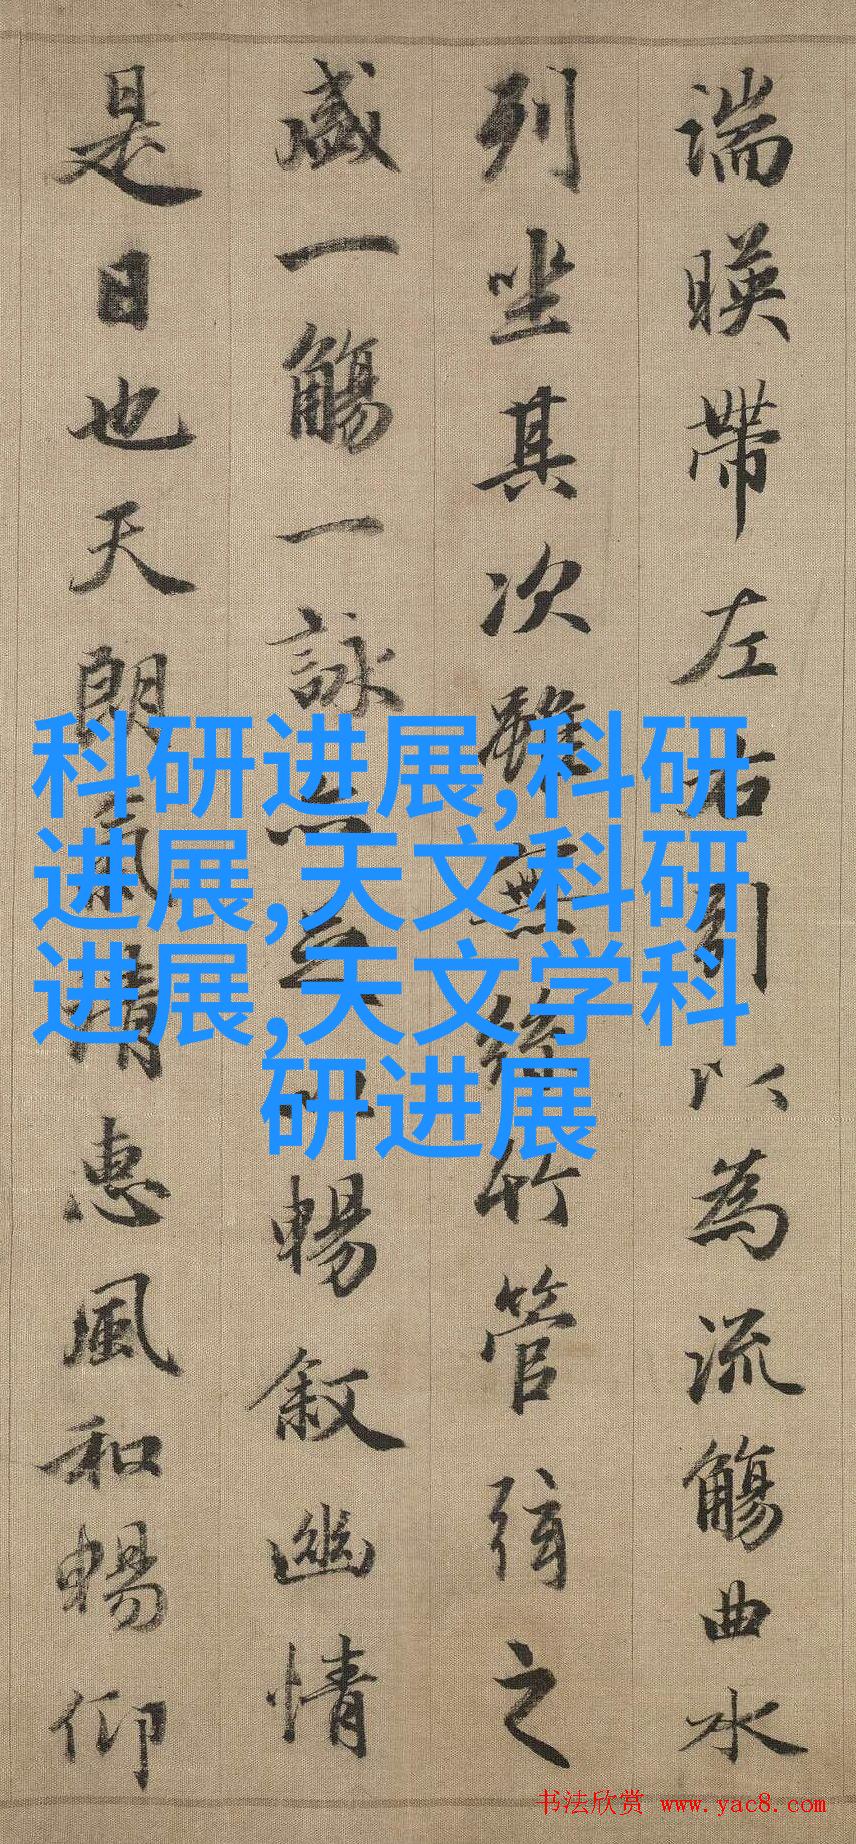 湍暎帶左右引以為流觴曲水
列坐其次雖無絲竹管弦之
盛一觴一詠亦足以暢叙幽情
是日也天朗氣清惠風和暢仰
科研进展,科研
进展,天文科研
进展,天文学科
研进展
书法欣赏 www.yac8.com